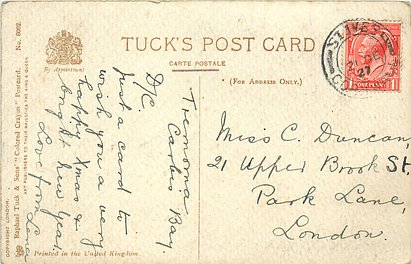 TUCK'S POST CARD
CARTE POSTALE
(FOR ADDRESS ONLY.)
By Appointment
Raphael Tuck & Sons' "Colored Crayon" Postcard. No. 6092.
COPYRIGHT LONDON.
Printed in the United Kingdom.
ST. IVES
21 DE
27
ONE PENNY
Tremorna
Carbis Bay.
D/C
Just a card to
wish you a very
happy Xmas &
bright New Year.
Love from
Miss C. Duncan,
21 Upper Brook St,
Park Lane,
London.